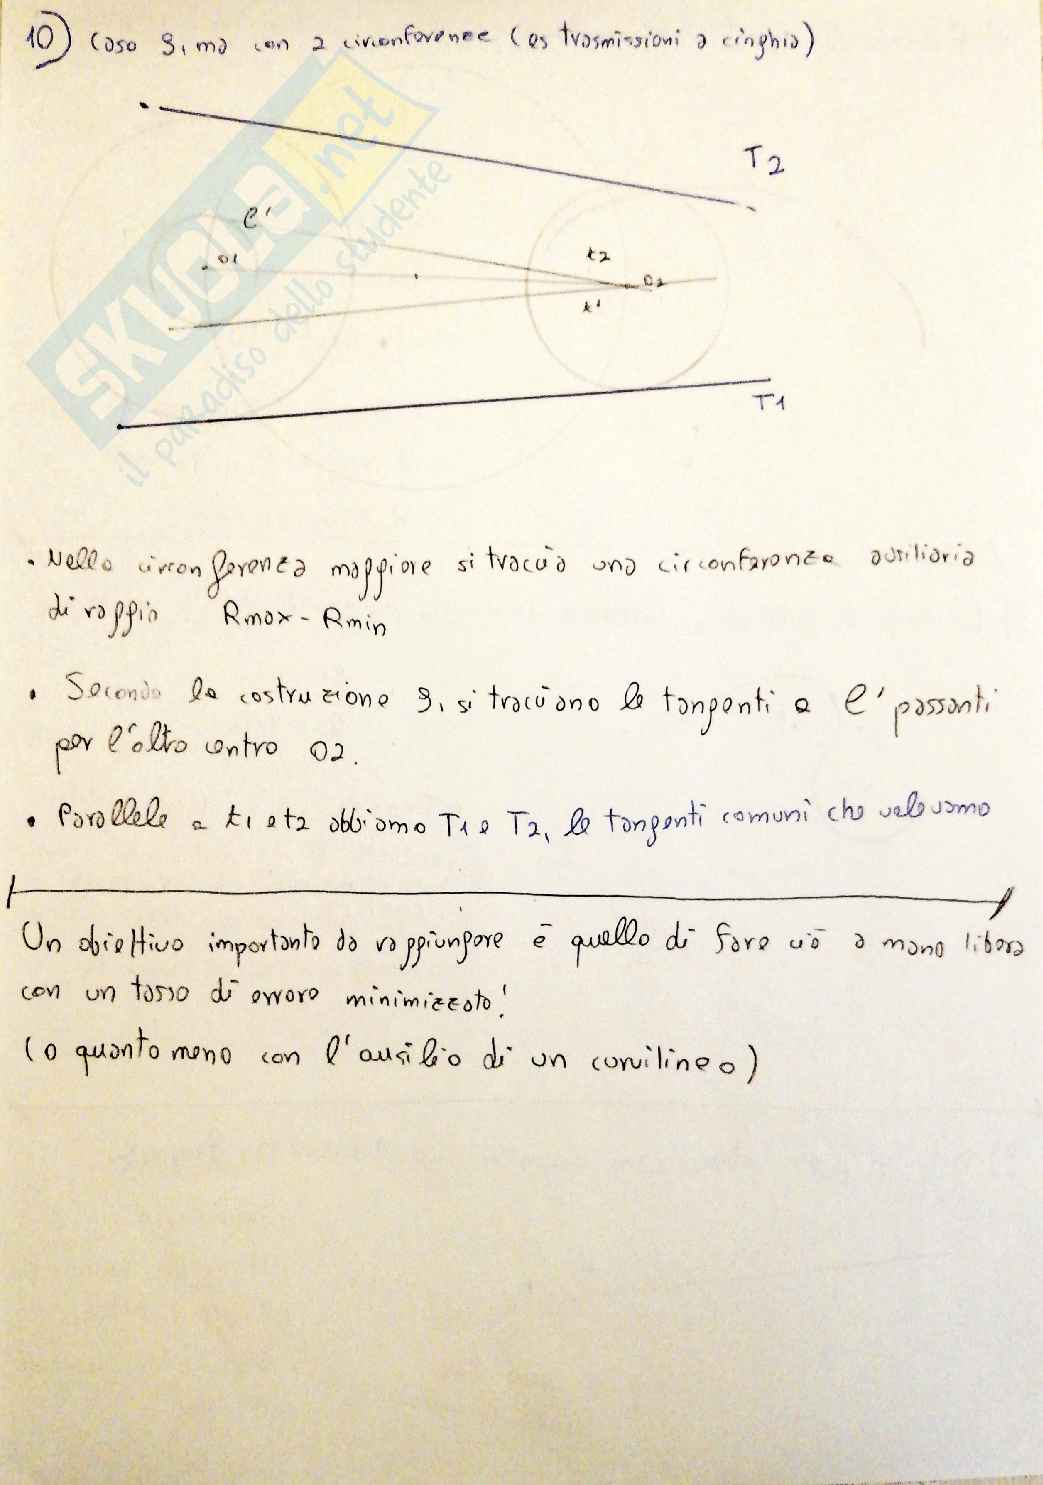 10) Caso 9, ma con 2 circonferenze (es trasmissioni a cinghia)
T2
C'
O1
t2
O2
t1
T1
SKUOLA.net
il paradiso dello studente
• Nella circonferenza maggiore si traccia una circonferenza ausiliaria
di raggio Rmax - Rmin
• Secondo la costruzione 9, si tracciano le tangenti a C' passanti
per l'altro centro O2.
• Parallele a t1 e t2 abbiamo T1 e T2, le tangenti comuni che volevamo
Un obiettivo importante da raggiungere è quello di fare ciò a mano libera
con un tasso di errore minimizzato!
(o quanto meno con l'ausilio di un curvilineo)